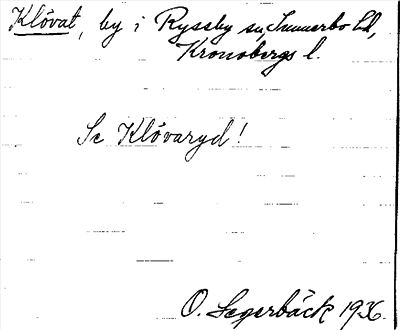 Klövat, by i Ryssby sn, Sunnerbo hd,
Kronobergs l.
Se Klövaryd!
O. Segerbäck 1936.